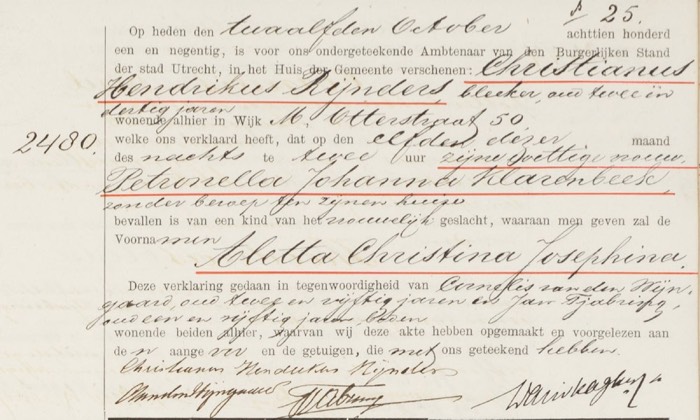 25.
Op heden den twaalfden October achttien honderd
een en negentig, is voor ons ondergeteekende Ambtenaar van den Burgerlijken Stand
der stad Utrecht, in het Huis der Gemeente verschenen: Christianus
Hendrikus Rijnders, bleeker, oud twee en
dertig jaren
wonende alhier in Wijk M, Otterstraat 50
2480. welke ons verklaard heeft, dat op den elfden dezer maand
des nachts te twee uur zijne wettige vrouw
Petronella Johanna Klarenbeek,
zonder beroep ten zijnen huize
bevallen is van een kind van het vrouwelijk geslacht, waaraan men geven zal de
Voornamen
Aletta Christina Josephina.
Deze verklaring gedaan in tegenwoordigheid van Cornelis van den Wijn-
gaard, oud twee en vijftig jaren en Jan
oud een en vijftig jaren, beiden
wonende beiden alhier, waarvan wij deze akte hebben opgemaakt en voorgelezen aan
de n aangever en de getuigen, die met ons geteekend hebben.
Christianus Hendrikus Rijnders